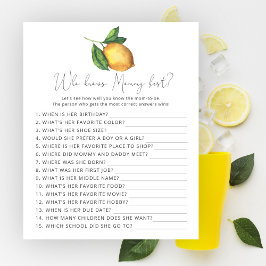 Who knows Mommy best?
Let's see how well you know the mom-to-be
The person who gets the most correct answers wins
1. WHEN IS HER BIRTHDAY?
2. WHAT'S HER FAVORITE COLOR?
3. WHAT'S HER SHOE SIZE?
4. WOULD SHE PREFER A BOY OR A GIRL?
5. WHERE IS HER FAVORITE PLACE TO SHOP?
6. WHERE DID MOMMY AND DADDY MEET?
7. WHERE WAS SHE BORN?
8. WHAT WAS HER FIRST JOB?
9. WHAT IS HER MIDDLE NAME?
10. WHAT'S HER FAVORITE FOOD?
11. WHAT'S HER FAVORITE MOVIE?
12. WHAT'S HER FAVORITE HOBBY?
13. WHEN IS HER DUE DATE?
14. HOW MANY CHILDREN DOES SHE WANT?
15. WHICH SCHOOL DID SHE GO TO?